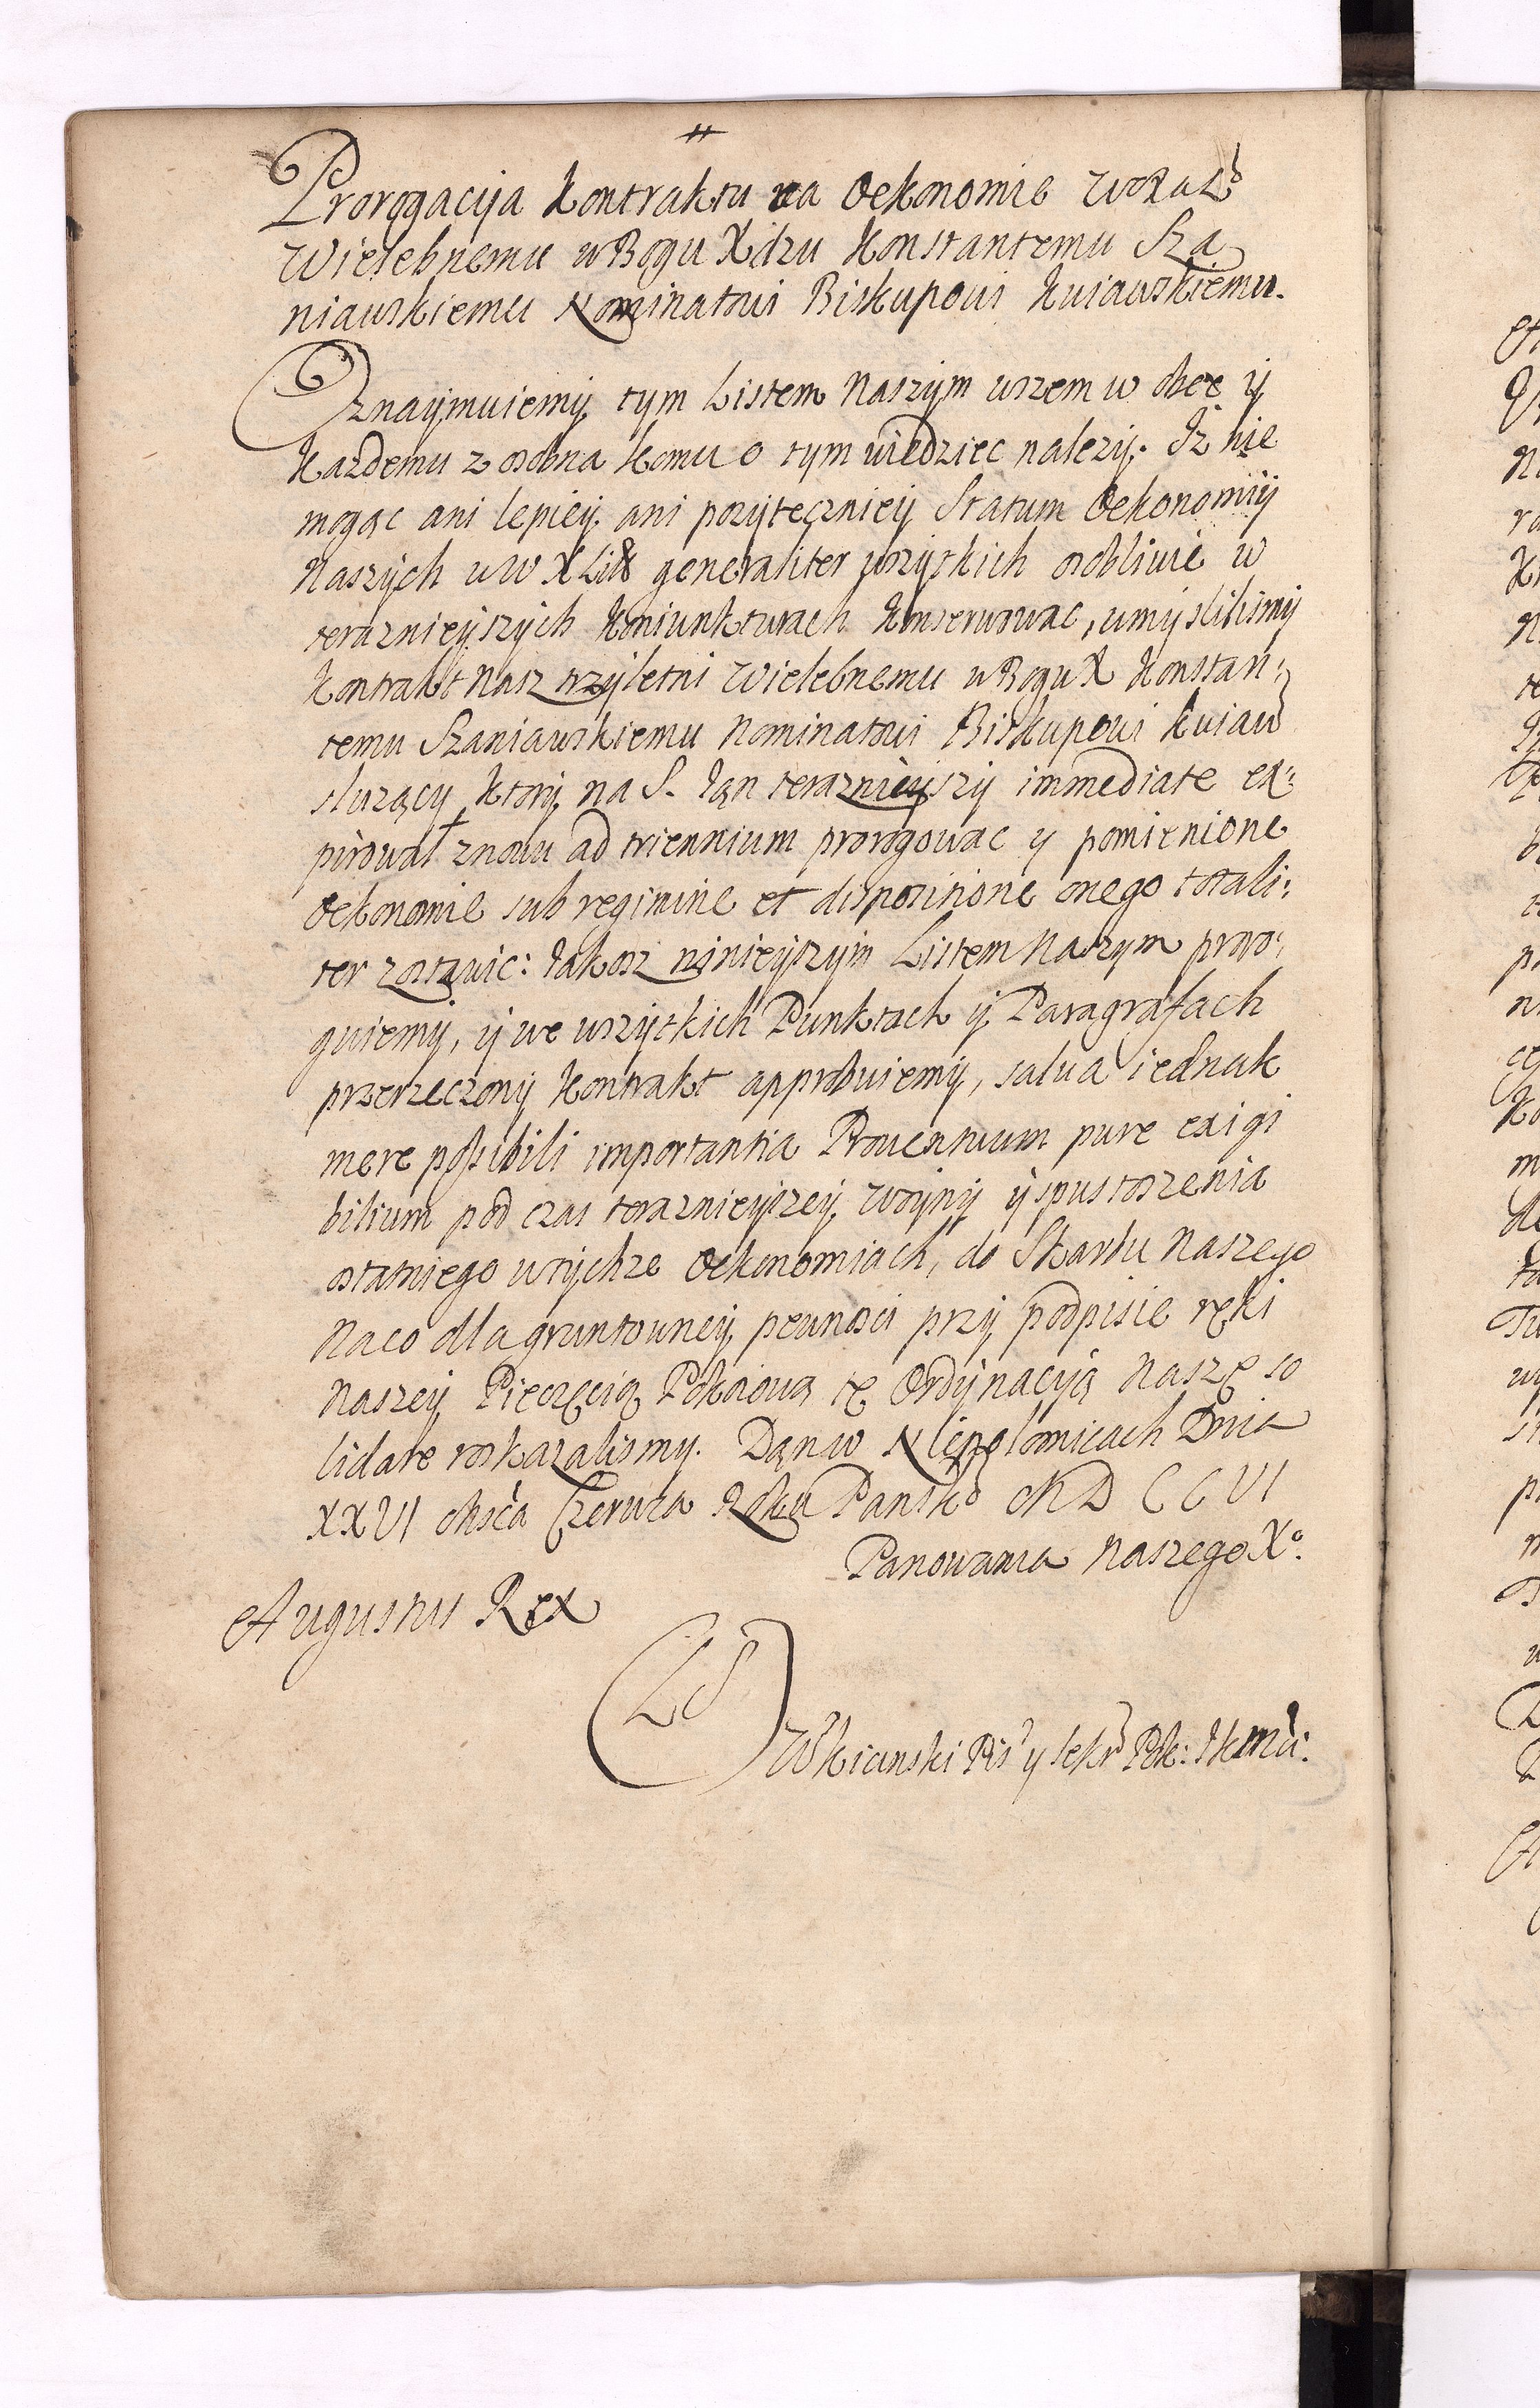 Prorogacyja Kontraktu na Oekonomie
Wielebnemu w Bogu Xdzu Konstantemu Sza
niawskiemu Nominatowi Biskupowi Kuiawskiemu.
Oznaymuiemy tym Listem Naszym wszem w obec y
Każdemu z osobna komu o tym wiedziec nalezy. Iż nie
mogąc ani lepiey ani pozyteczniey Statum Oekonomiy
Naszych w W X Lit generaliter wszytkich osobliwie w
teraznieyszych Koniunkturach Konserwowac, umyslilismy
Kontrakt Nasz trzyletni Wielebnemu w Bogu X Konstan:
temu Szaniawskiemu Nominatowi Biskupowi Kuiaw
sluzący ktory na S. Ian teraznieyszy immediate ex:
pirował znowu ad triennium prorogowac y pomienione
Oekonomie sub regimine et dispositione onego totali:
ter zostawic: Iakosz ninieyszym Listem Naszym proro:
guiemy, y we wszytkich Punktach y Paragrafach
przerzeczony Kontrakt approbuiemy, salva iednak
mere possibili importantia Proventuum pure exigi
bilium pod czas teraznieyszey woyny y spustoszenia
ostatniego w tychze Oekonomiach, do Skarbu Naszego
Na co dla gruntowney pewnosci przy podpisie ręki
Naszey Pieczęcią Pokoiową tę Ordynacyją Naszę so
lidare roskazalismy. Dan w Niepolomicach Dnia
XXVI Msca Czerwca Roku Pansko MDCCVI
Panowania Naszego Xo.
Augustus Rex
LS
Pis y Sekr Pok: Jkmci: